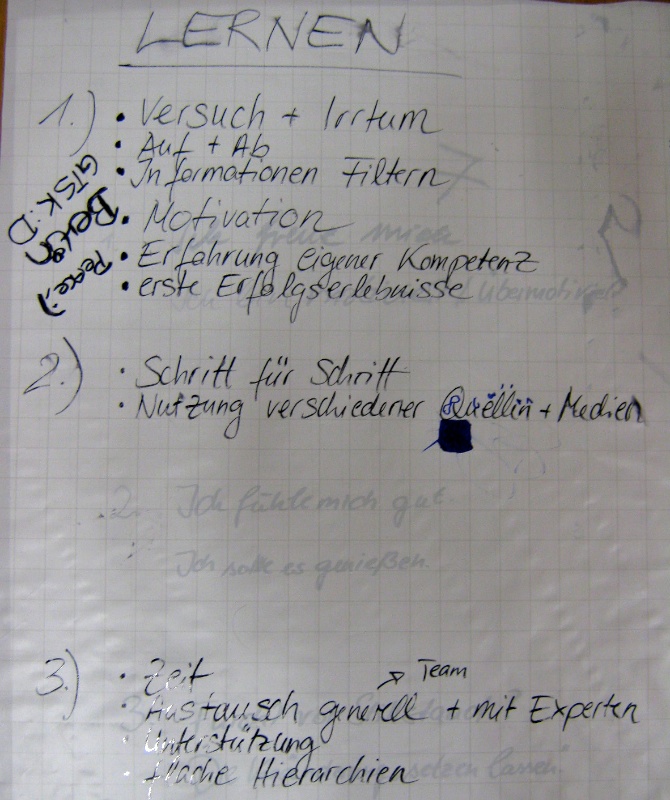 LERNEN
1.) • Versuch + Irrtum
• Auf + Ab
• Informationen Filtern
• Motivation
• Erfahrung eigener Kompetenz
• erste Erfolgserlebnisse
GTSK:D
Peace;)
2.) • Schritt für Schritt
• Nutzung verschiedener Quellen + Medien
2. Ich fühle mich gut.
Ich sollte es genießen
3.) • Zeit
Team
• Austausch generell + mit Experten
• Unterstützung
flache Hierarchien